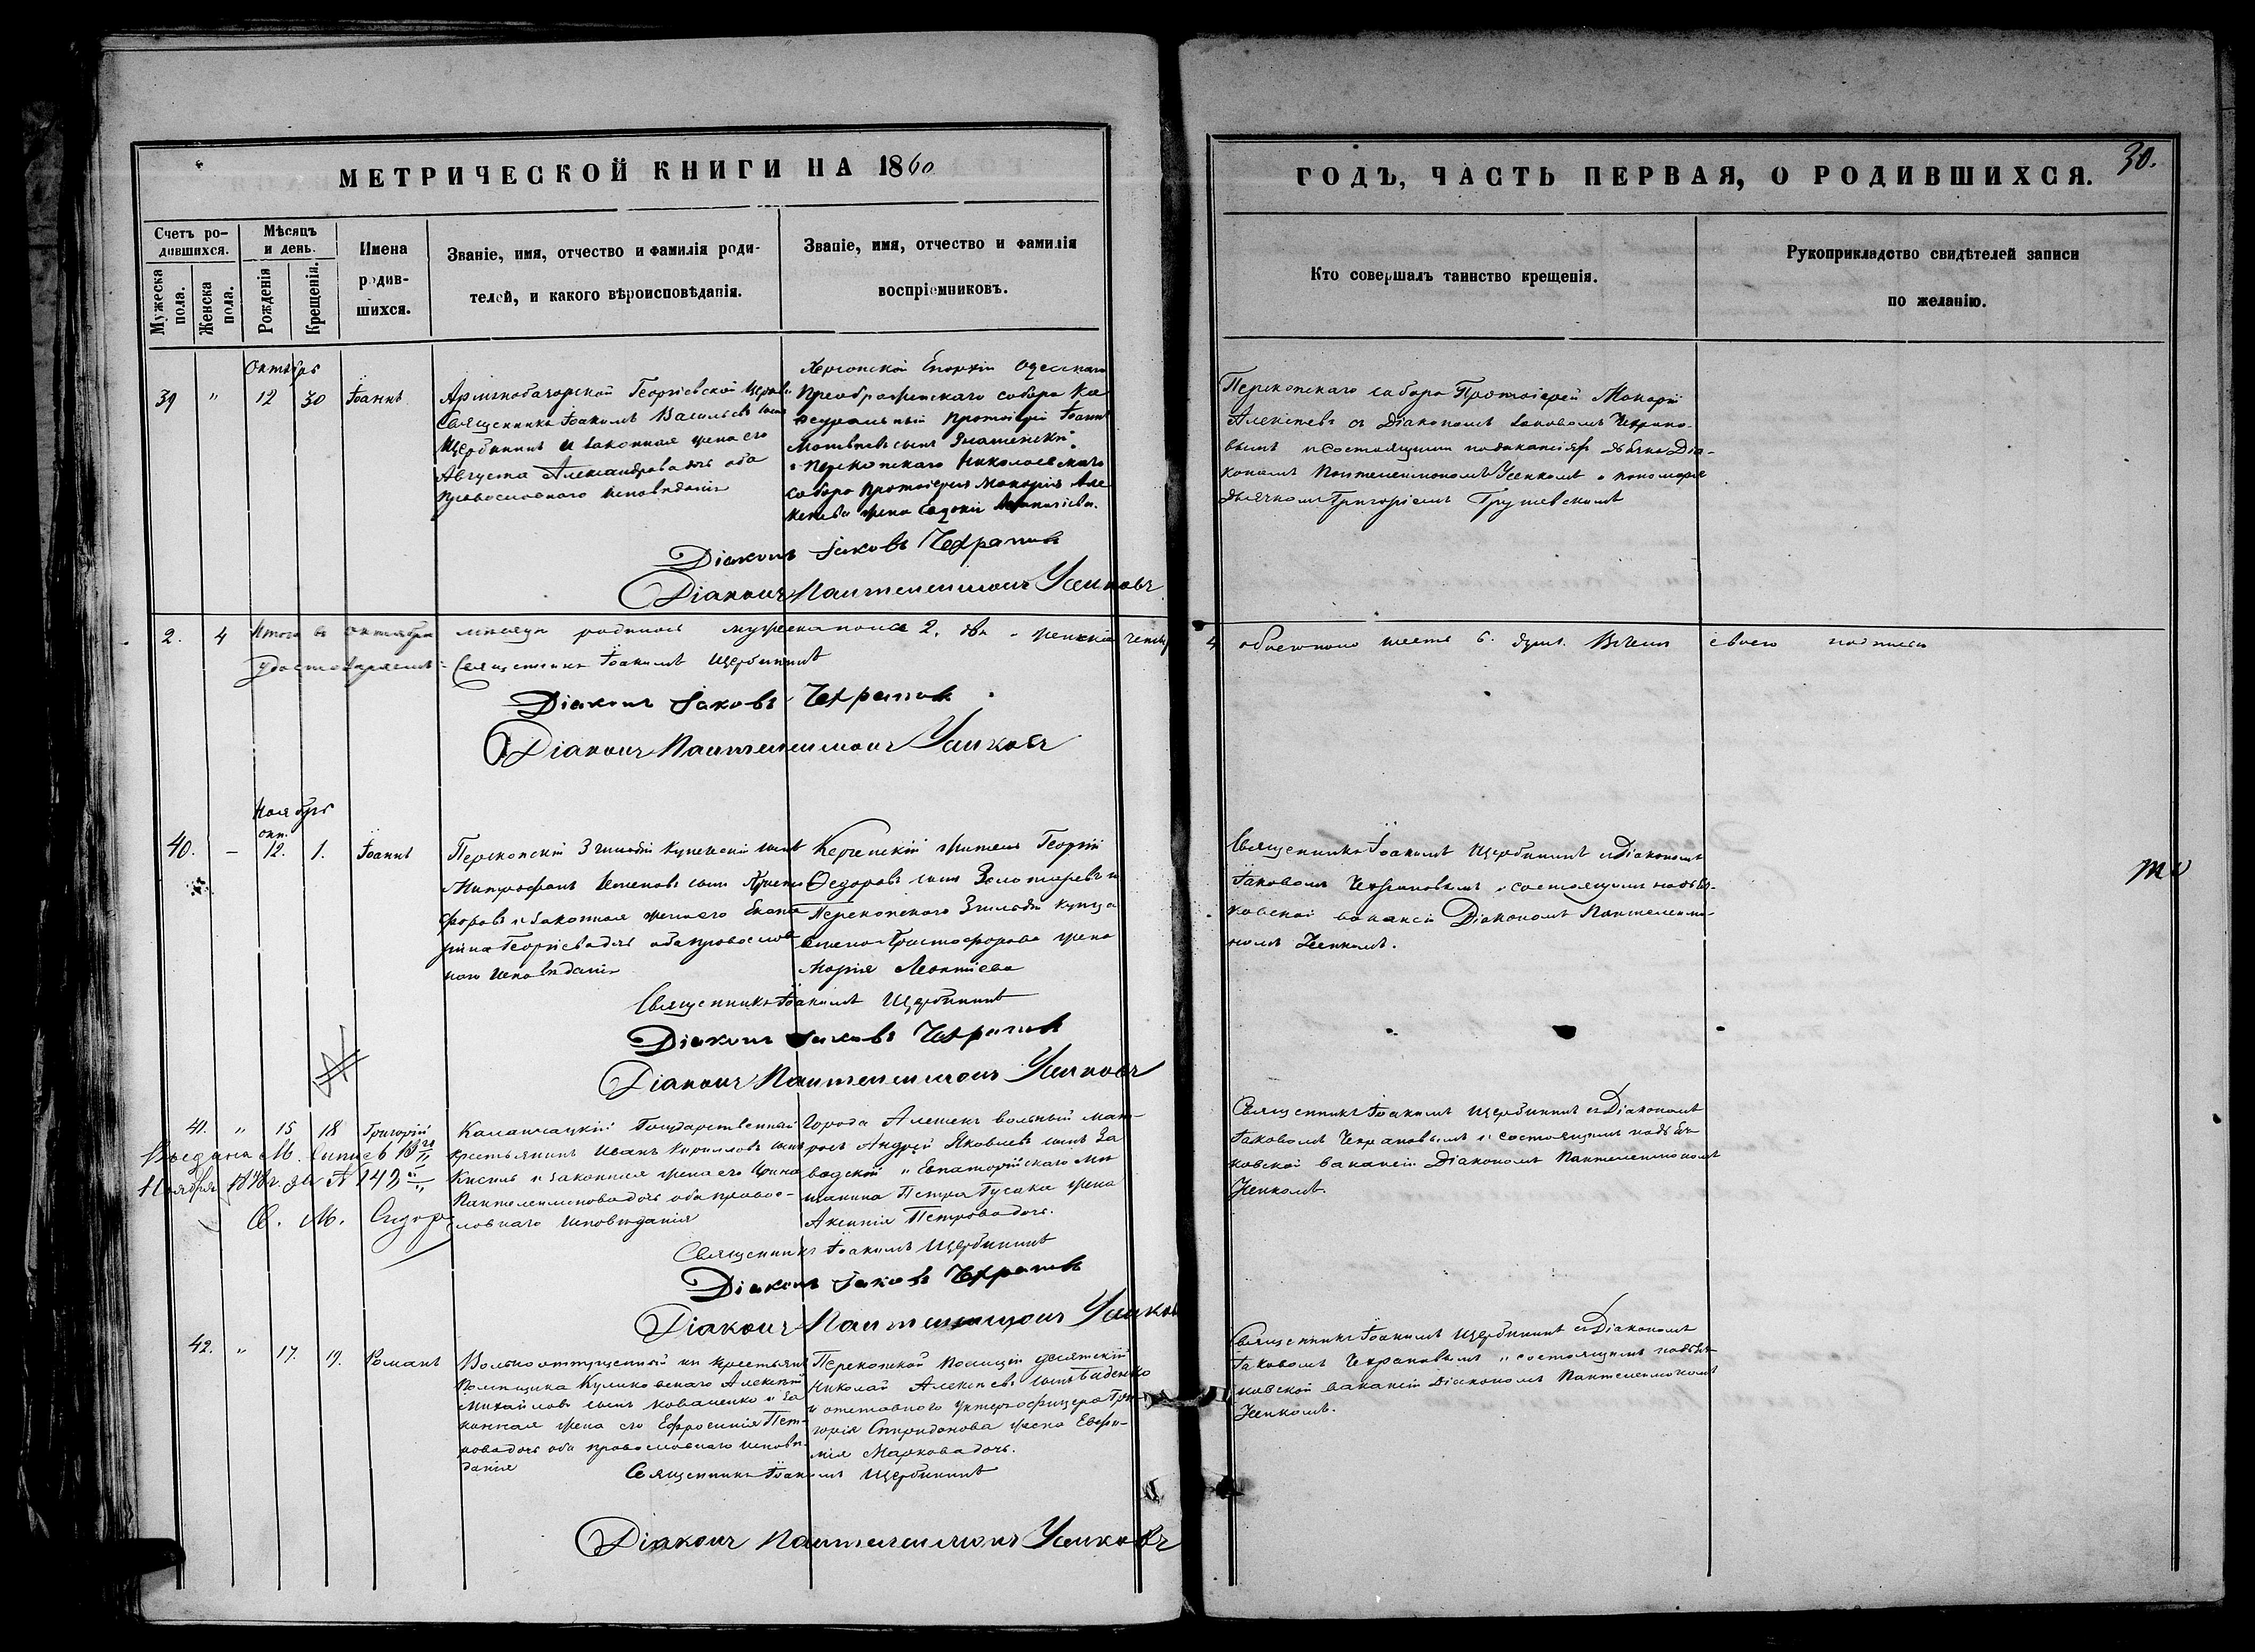 МЕТРИЧЕСКОЙ КНИГИ НА 1860
ГОДЪ, ЧАСТЬ ПЕРВАЯ, О РОДИВШИХСЯ.
30.
Счетъ ро-
дившихся.
Мужеска пола.
Женска пола.
Мѣсяцъ
и день.
Рожденія
Крещенія.
Имена
родив-
шихся.
Званіе, имя, отчество и фамилія роди-
телей, и какого вѣроисповѣданія.
Званіе, имя, отчество и фамилія
воспріемниковъ.
Кто совершалъ таинство крещенія.
Рукоприкладство свидѣтелей записи
по желанію.
Октябрь
39 " 12 30 Іоаннъ
Георгіевской Церкви
Священникъ Іоакимъ Васильевъ сынъ
Щербининъ и законная жена его
Августа Александрова дочь оба
православнаго исповѣданія
Херсонской Епархіи Одесскаго
Преображенскаго собора Ка
ѳедральный протоіерей Іоаннъ
сынъ Знаменскій
и Перекопскаго Николаевскаго
собора протоіерея Макарія Але
жена
Перекопскаго собора Протоіерей Макарій
Алексѣевъ съ Діакономъ Іаковомъ Чехрано-
вымъ и состоящими Діа-
кономъ Пантелеимономъ Усенкомъ и
Григоріемъ Грушевскимъ
Діаконъ Іаковъ Чехрановъ
Діаконъ Пантелеимонъ Усенковъ
2. 4 Итого въ октябрѣ мѣсяцѣ родилось мужеска пола 2. два женска четыре
4 обоего пола шесть 6. душъ. своею подписью
удостовѣряемъ: Священникъ Іоакимъ Щербининъ
Діаконъ Іаковъ Чехрановъ
Діаконъ Пантелеимонъ Усенковъ
Ноябрь
окт.
40. – 12. 1. Іоаннъ
Перекопскій 3 гильдіи купеческій сынъ
Митрофанъ сынъ Христо
форовъ и законная жена его Екате
рина Георгіева дочь оба православ
наго исповѣданія
Керченскій житель Георгій
Ѳедоровъ сынъ Золотаревъ и
Перекопскаго 3 гильдіи купца
Христофорова жена
Марія Леонтіева
Священникъ Іоакимъ Щербининъ съ Діакономъ
Іаковомъ Чехрановымъ и состоящимъ на дья-
ковской вакансіи Діакономъ Пантелеимо-
номъ Усенкомъ.
Священникъ Іоакимъ Щербининъ
Діаконъ Іаковъ Чехрановъ
Діаконъ Пантелеимонъ Усенковъ
41. " 15 18 Григорій
Каланчацкій Государственный
крестьянинъ Иванъ Кирилловъ сынъ
Кисиль и законная жена его Ирина
Пантелеимонова дочь оба правос-
лавнаго исповѣданія
города Алешекъ вольный мат-
росъ Андрей Яковлевъ сынъ За
водскій и Евпаторійскаго мѣ
щанина Петра Гусака жена
Аксинія Петрова дочь.
Священникъ Іоакимъ Щербининъ съ Діакономъ
Іаковомъ Чехрановымъ и состоящимъ на дья-
ковской вакансіи Діакономъ Пантелеимономъ
Усенкомъ.
Ноября № 142
Священникъ Іоакимъ Щербининъ
Діаконъ Іаковъ Чехрановъ
Діаконъ Пантелеимонъ Усенковъ
42. " 17. 19. Романъ
Вольноотпущенный изъ крестьянъ
помѣщика Куликовскаго Алексѣй
Михайловъ сынъ Коваленко и за
конная жена его Ефросинія Пет-
рова дочь оба православнаго исповѣ
данія
Перекопской полиціи десятскій
Николай Алексѣевъ сынъ
и отставного унтеръ-офицера Гри
горія Спиридонова жена Евфи-
мія Маркова дочь.
Священникъ Іоакимъ Щербининъ съ Діакономъ
Іаковомъ Чехрановымъ и состоящимъ на дья-
ковской вакансіи Діакономъ Пантелеимономъ
Усенкомъ.
Священникъ Іоакимъ Щербининъ
Діаконъ Пантелеимонъ Усенковъ